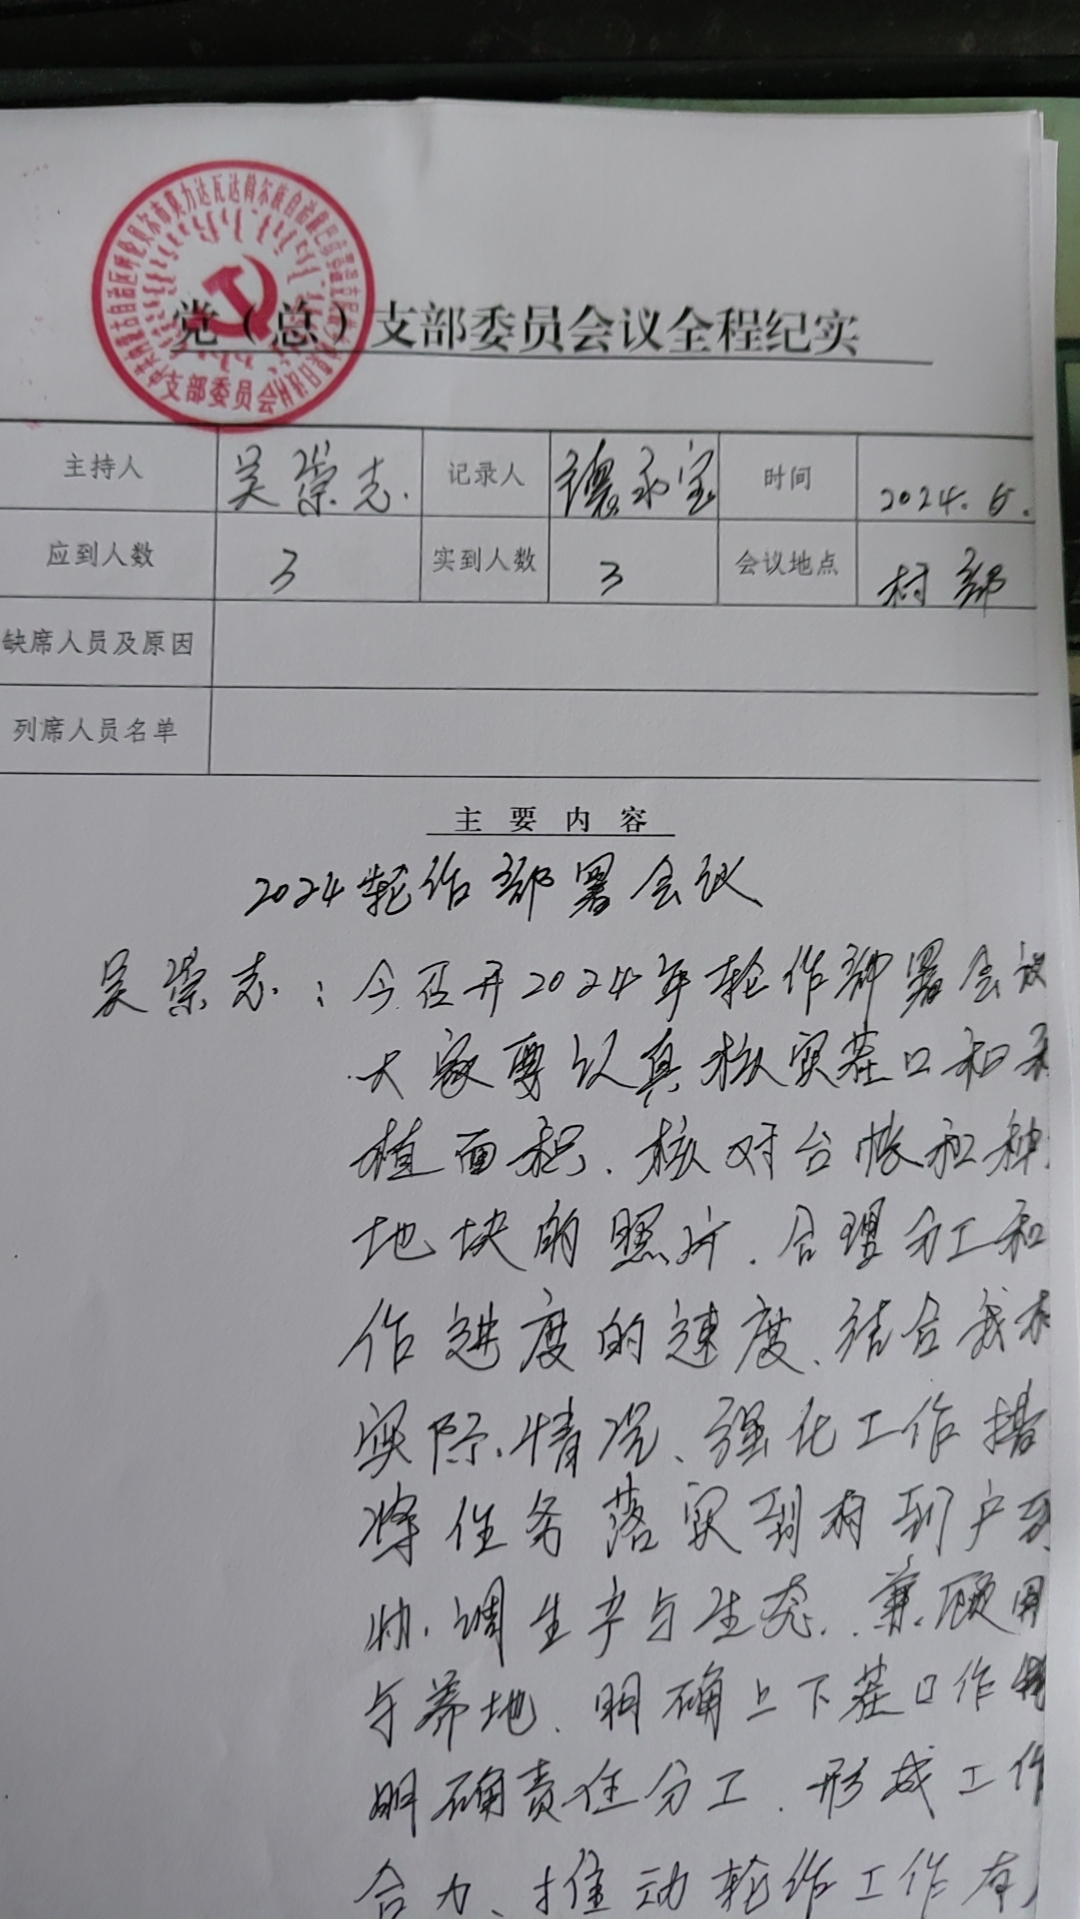 党（总）支部委员会议全程纪实
支部委员会
主持人 吴崇志. 记录人 永宝 时间 2024.6.
应到人数 3 实到人数 3 会议地点 村部
缺席人员及原因
列席人员名单
主要内容
2024轮作部署会议
吴崇志：今召开2024年轮作部署会议
大家要认真核实茬口和
植面积、核对台帐和种
地块的照片、合理分工和
作进度的速度、结合我村
实际情况、强化工作措
将任务落实到村到户到
协调生产与生态、兼顾用
与养地、明确上下茬口作物
明确责任分工、形成工作
合力、推动轮作工作有